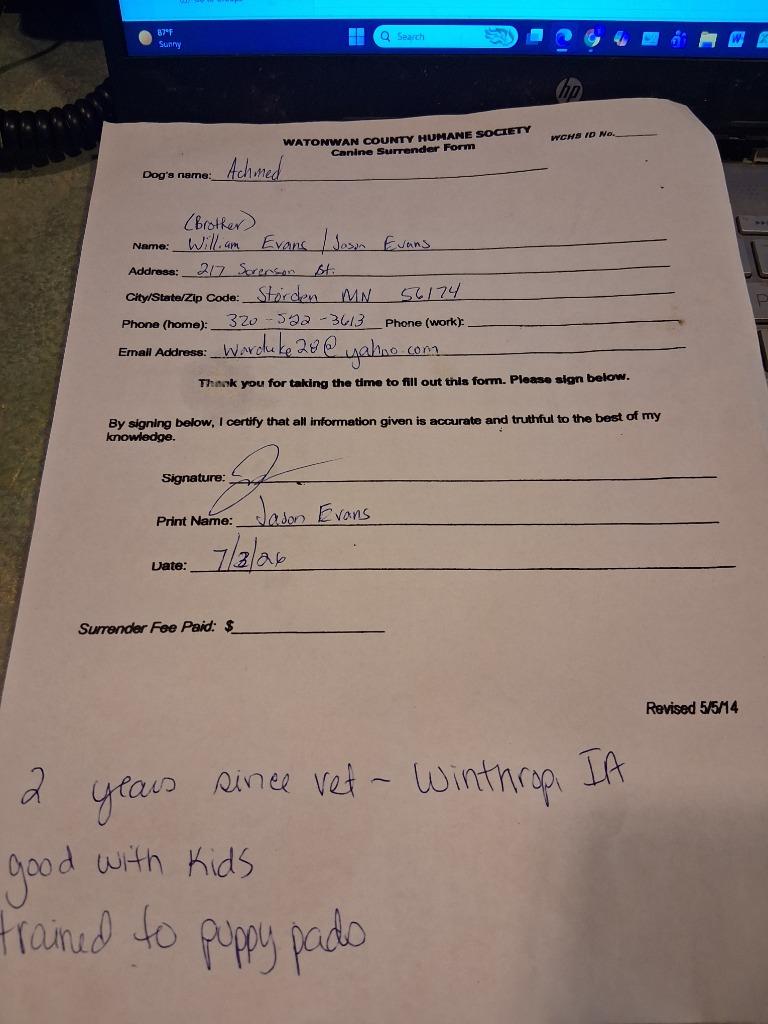 87°F
Sunny
Search
hp
WATONWAN COUNTY HUMANE SOCIETY
Canine Surrender Form
WCHS ID No.
Dog's name: Achmed
(Brother)
Name: William Evans / Jason Evans
Address: 217 Sorenson St.
City/State/Zip Code: Storden MN 56174
Phone (home): 320-522-3613 Phone (work):
Email Address: Warduke28@yahoo.com
Thank you for taking the time to fill out this form. Please sign below.
By signing below, I certify that all information given is accurate and truthful to the best of my
knowledge.
Signature:
Print Name: Jason Evans
Date: 7/3/26
Surrender Fee Paid: $
Revised 5/5/14
2 years since vet - Winthrop, IA
good with kids
trained to puppy pads